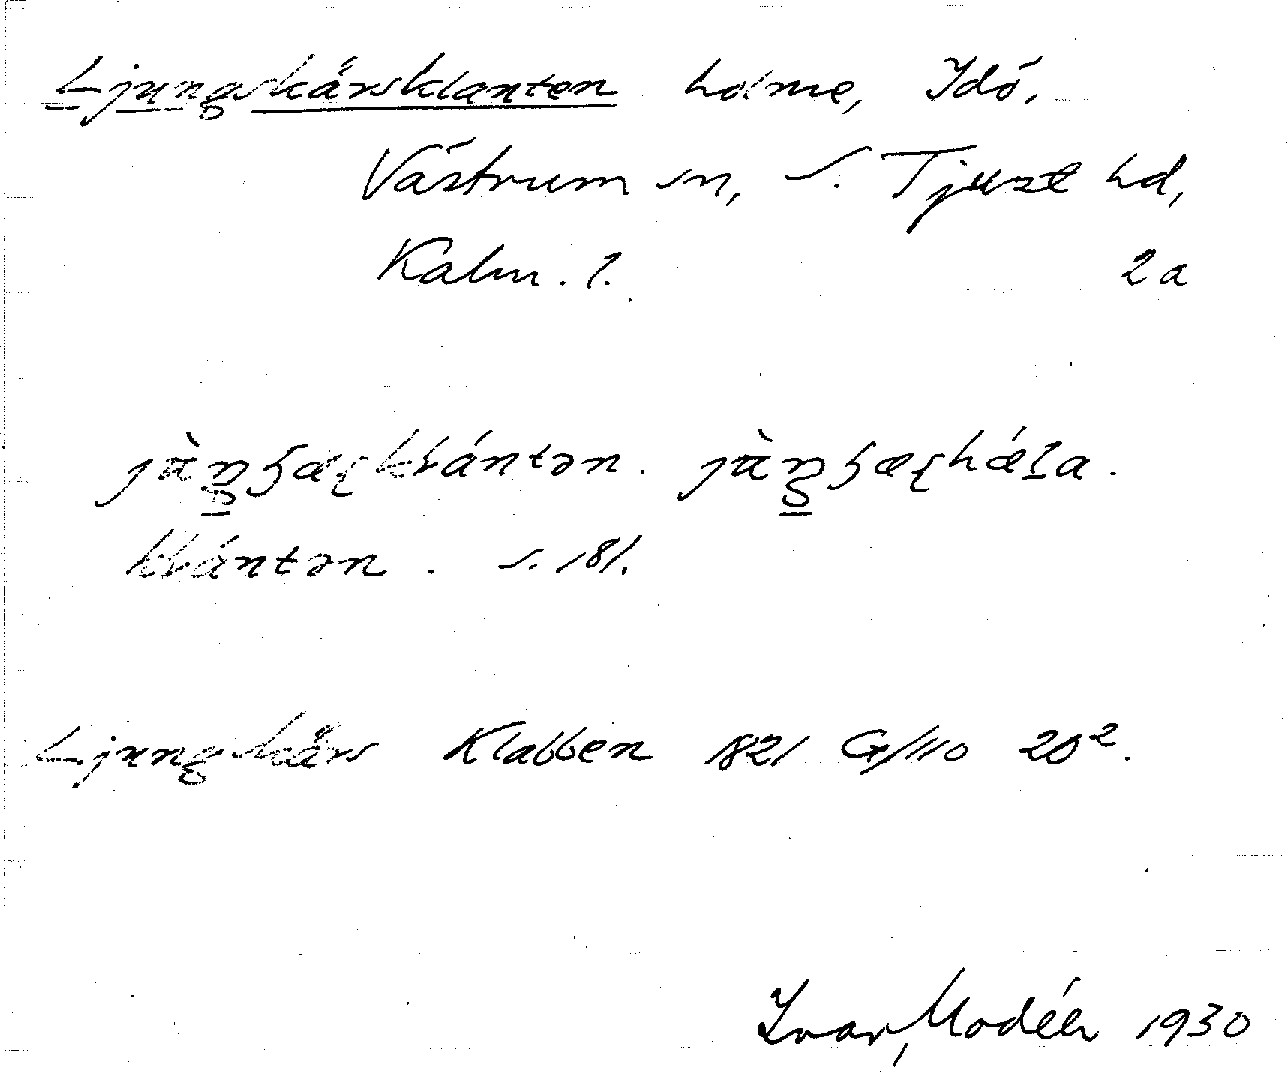 Ljungskärsklanten holme, Idö,
Västrum sn, S. Tjust hd,
Kalm. l. 2a
klántən . s. 181.
Ljungskärs Klabben 1821 G/110 20².
Ivar Modéer 1930